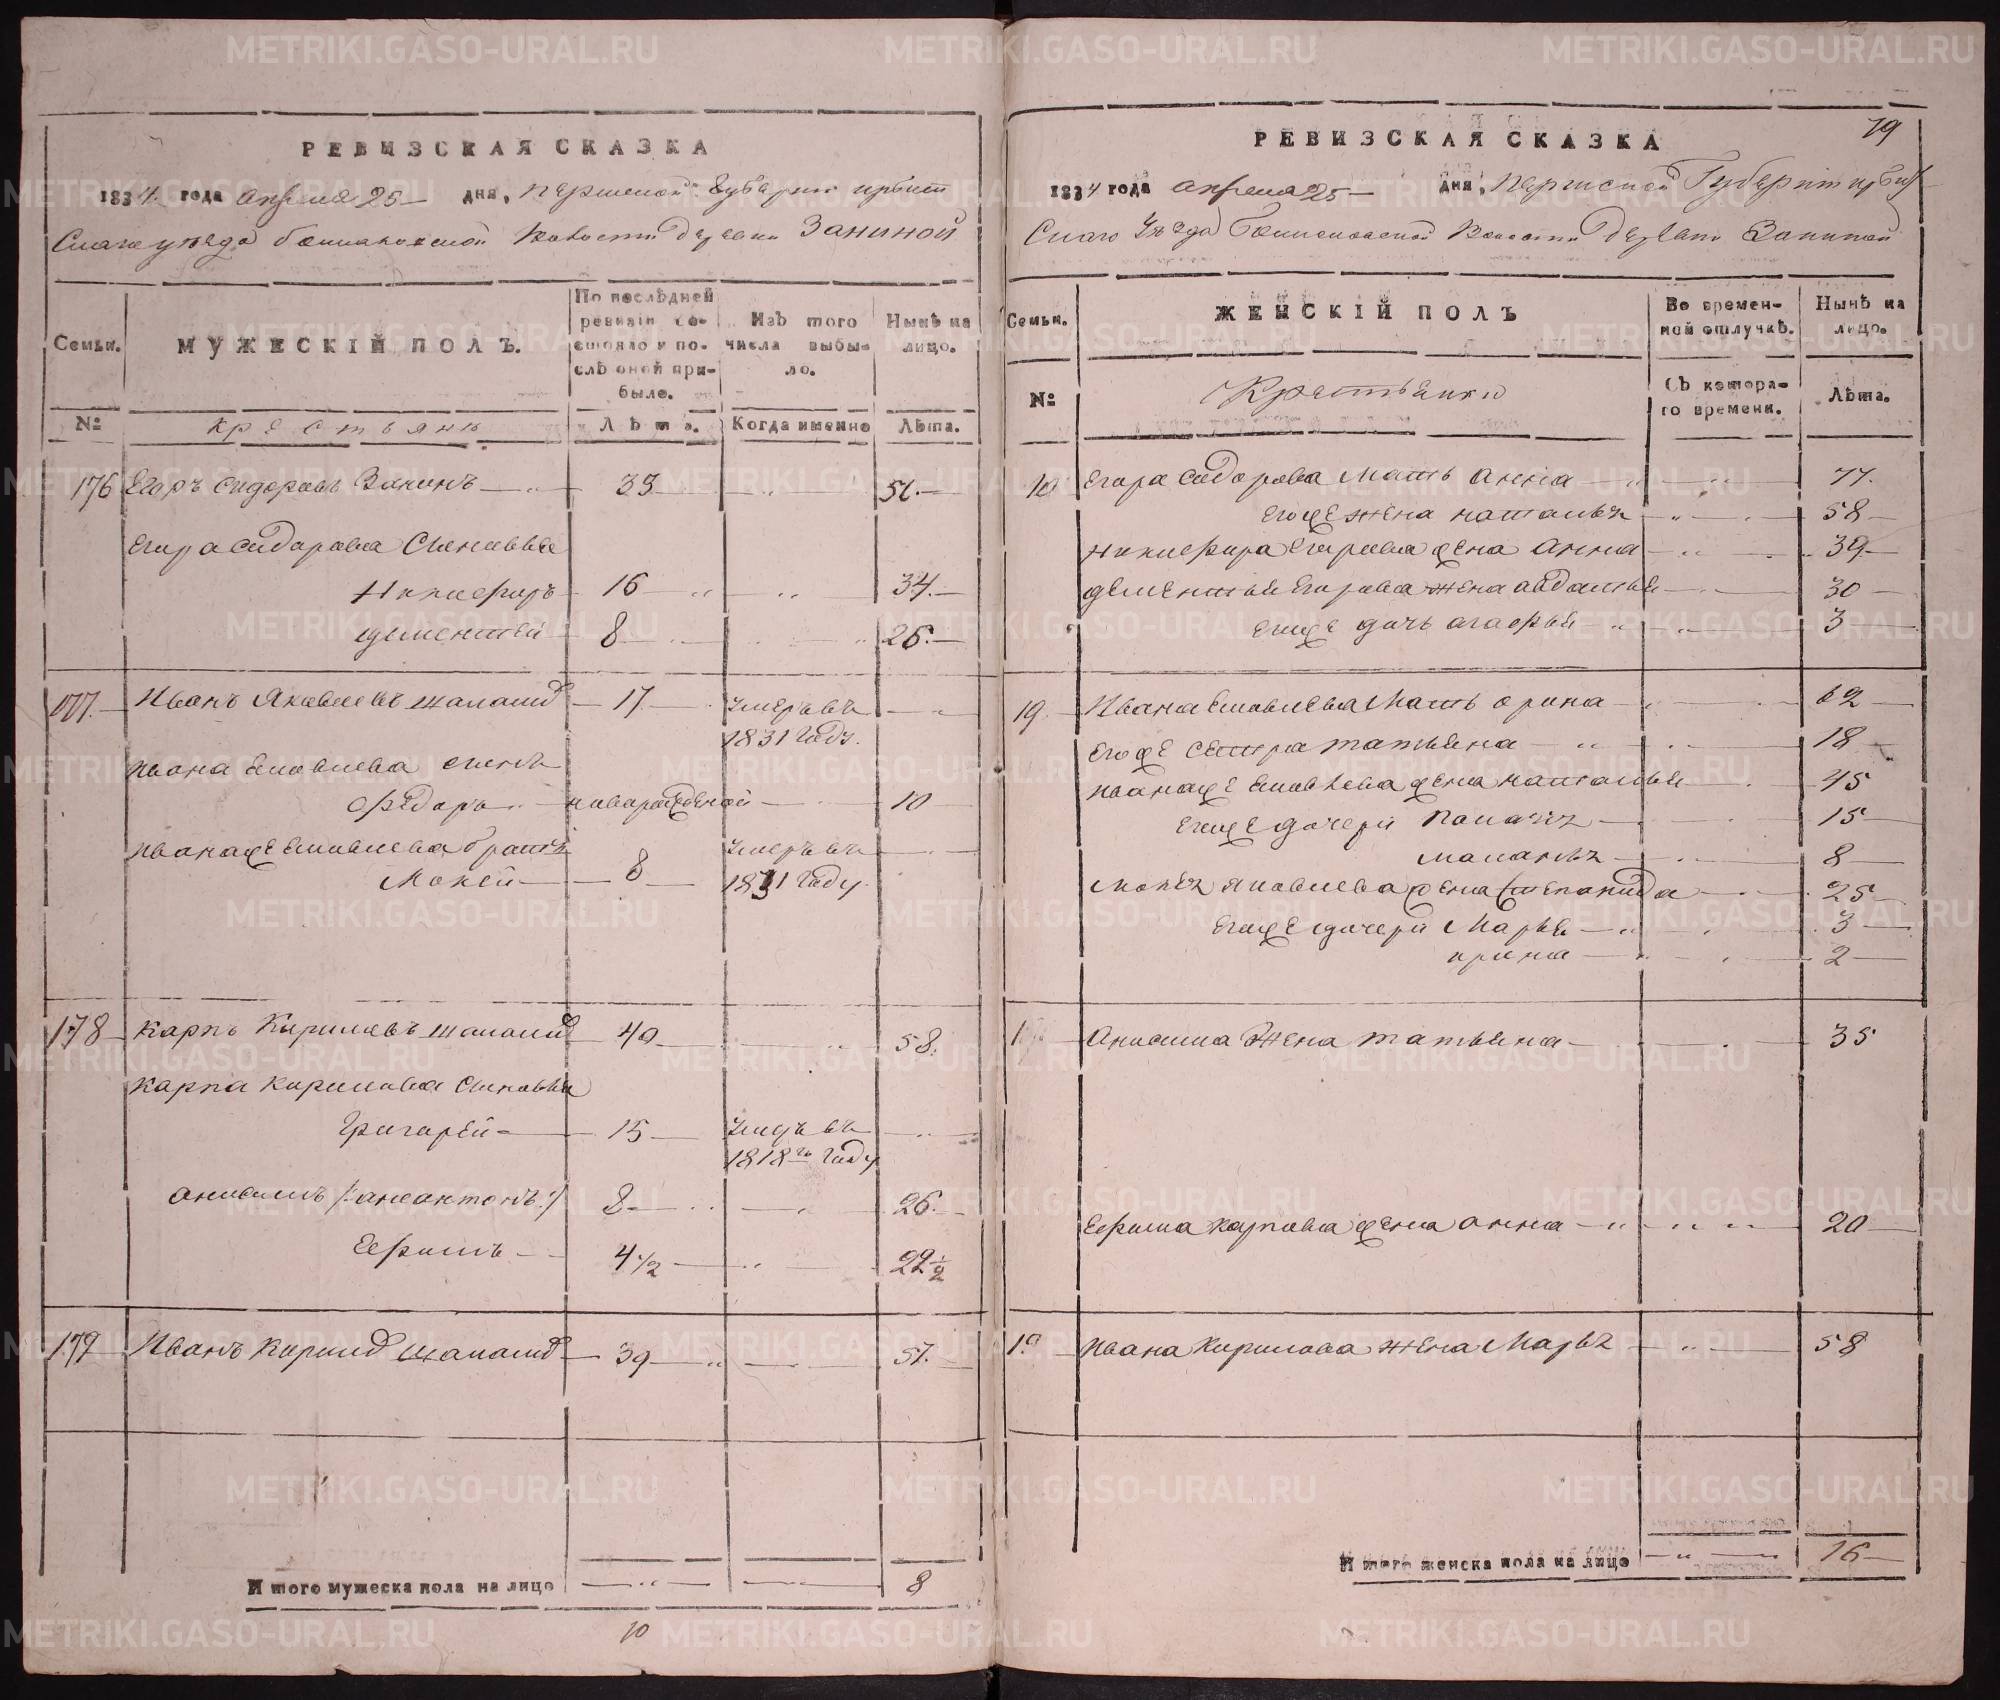 РЕВИЗСКАЯ СКАЗКА
1834. года апреля 25 дня, Пермской Губернии ирбит
Скаго уезда волости деревни Заниной
Семьи. МУЖЕСКІЙ ПОЛЪ. По послѣдней ревизіи состояло и послѣ оной прибыло. Изъ того числа выбыло. Нынѣ на лицо.
№ крестьяне Лѣта. Когда именно Лѣта.
176 Егоръ Сидоровъ Занинъ 33 51.
Егора Сидорова Сыновья
Никифоръ 16 34.
дементей 8 26.
177. Иванъ Яковлевъ 17 умеръ въ
1831 году.
Ивана Яковлева сынъ
Федоръ новорожденой 10
Иванаже Яковлева братъ умеръ въ
Мокей 8 1831 году.
178 Карпъ Кириловъ 40 58.
Карпа Кирилова Сыновья
Григорей 15 умеръ въ
1818 году
анисимъ /:онъ антонъ:/ 8 26.
Ефимъ 4 1/2 22 1/2
179 Иванъ Кирилов 39 57.
И того мужеска пола на лицо 8
10
79
РЕВИЗСКАЯ СКАЗКА
1834 года апреля 25 дня, Пермской Губернии ирбит
Скаго Уезда Волости деревни Заниной
Семьи. ЖЕНСКІЙ ПОЛЪ Во временной отлучкѣ. Нынѣ на лицо.
№ Крестьянки Съ котораго времени. Лѣта.
Егора Сидорова Мать анна 77.
Егоже жена наталья 58
Никифора Егорова жена анна 39
дементья Егорова жена авдотья 30
Егоже дочь агафья 3
Ивана Яковлева Мать орина 62
Егоже сестра татьяна 18
Иванаже Яковлева жена наталья 45
Егоже дочери Палагея 15
маланья 8
Мокея Яковлева жена степанида 25
Егоже дочери Марья 3
ирина 2
Анисима Жена татьяна 35
Ефима карпова жена анна 20
Ивана Кирилова жена Марья 58
И того женска пола на лицо 16
METRIKI.GASO-URAL.RU